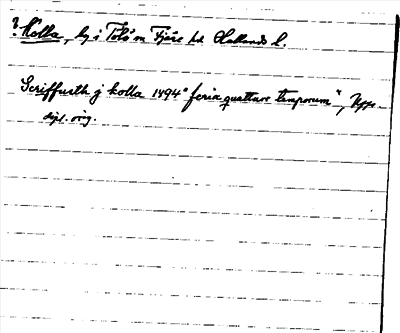 ? Kålla, by i Tölö sn Fjäre hd Hallands l.
Scriffwith j kolla 1494 "feria quattuor temporum", Upps.
dipl. orig.